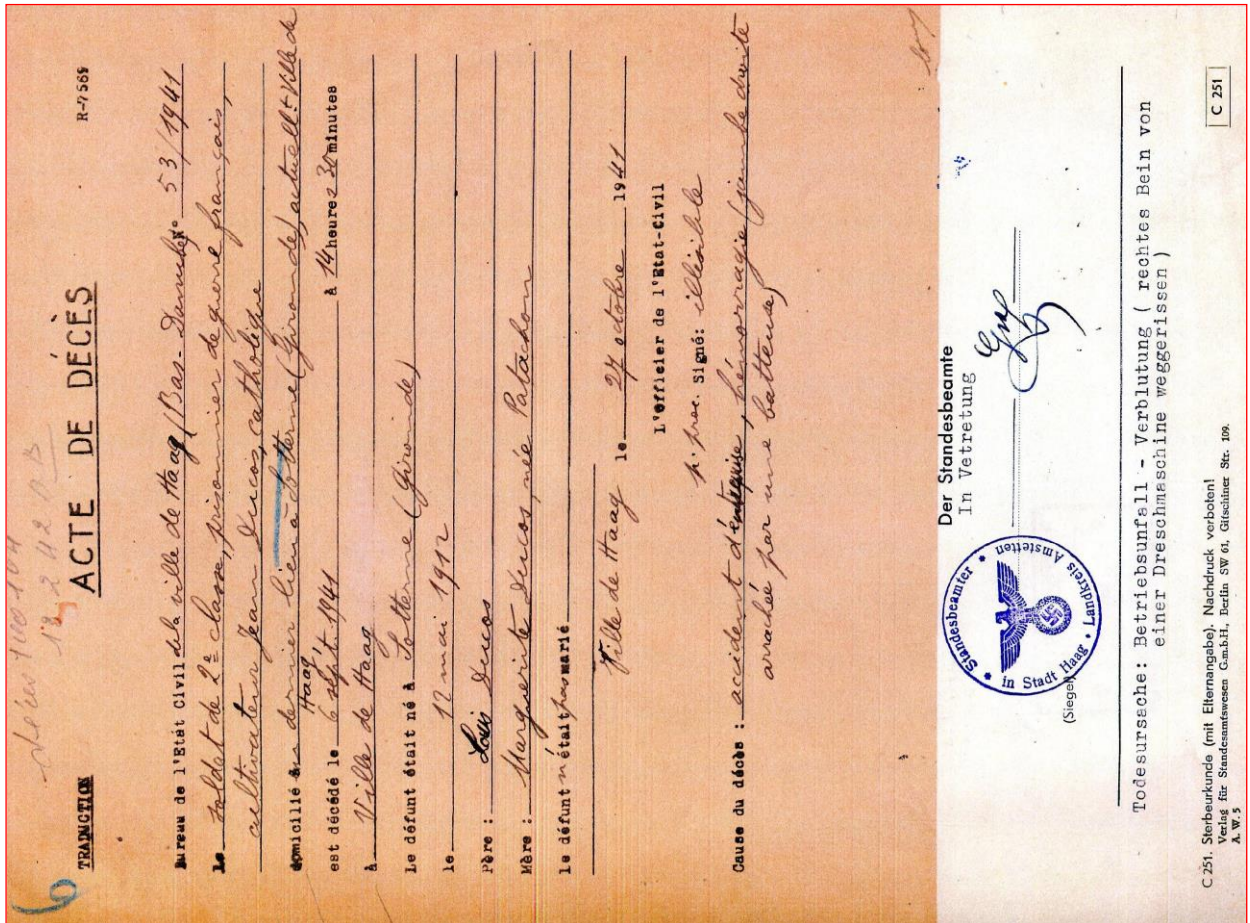 6
TRADUCTION
R-7569
ACTE DE DÉCÈS
Bureau de l'Etat Civil de la ville de Haag (Bas-Danube) N° 53/1941
Le soldat de 2e classe, prisonnier de guerre français,
cultivateur Jean Ducos, catholique
domicilié en dernier lieu à Sotterne (Gironde) actuellt Ville de
Haag
est décédé le 6 sept. 1941 à 14 heures 30 minutes
à Ville de Haag
Le défunt était né à Sotterne (Gironde)
le 12 mai 1912
Père : Louis Ducos
Mère : Marguerite Ducos, née Patachon
le défunt n'était pas marié
Ville de Haag le 27 octobre 1941
L'officier de l'Etat-Civil
p. proc. Signé: illisible
Cause du décès : accident d'entreprise, hémorragie (jambe droite
arrachée par une batteuse)
Der Standesbeamte
In Vetretung
(Siegel)
Standesbeamter
in Stadt Haag • Landkreis Amstetten
Todesursache: Betriebsunfall - Verblutung ( rechtes Bein von
einer Dreschmaschine weggerissen )
C 251. Sterbeurkunde (mit Elternangabe). Nachdruck verboten!
Verlag für Standesamtswesen G.m.b.H., Berlin SW 61, Gitschiner Str. 109.
A. W. 5
C 251